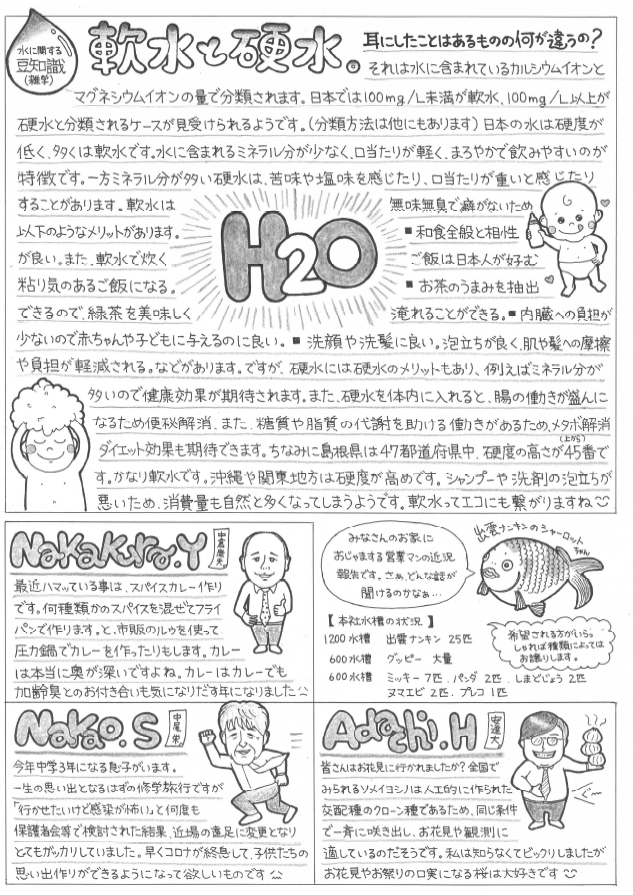 水に関する
豆知識
(雑学)
軟水と硬水。
耳にしたことはあるものの何が違うの?
それは水に含まれているカルシウムイオンと
マグネシウムイオンの量で分類されます。日本では100mg/L未満が軟水、100mg/L以上が
硬水と分類されるケースが見受けられるようです。(分類方法は他にもあります)日本の水は硬度が
低く、多くは軟水です。水に含まれるミネラル分が少なく、口当たりが軽く、まろやかで飲みやすいのが
特徴です。一方ミネラル分が多い硬水は、苦味や塩味を感じたり、口当たりが重いと感じたり
することがあります。軟水は 無味無臭で癖がないため
以下のようなメリットがあります。 ■和食全般と相性
が良い。また、軟水で炊く ご飯は日本人が好む
粘り気のあるご飯になる。 ■お茶のうまみを抽出
できるので、緑茶を美味しく 淹れることができる。■内臓への負担が
H2O
少ないので赤ちゃんや子どもに与えるのに良い。■洗顔や洗髪に良い。泡立ちが良く、肌や髪への摩擦
や負担が軽減される。などがあります。ですが、硬水には硬水のメリットもあり、例えばミネラル分が
多いので健康効果が期待されます。また、硬水を体内に入れると、腸の働きが盛んに
なるため便秘解消、また、糖質や脂質の代謝を助ける働きがあるため、メタボ解消
ダイエット効果も期待できます。ちなみに島根県は47都道府県中、硬度の高さが(上から)45番で
す。かなり軟水です。沖縄や関東地方は硬度が高めです。シャンプーや洗剤の泡立ちが
悪いため、消費量も自然と多くなってしまうようです。軟水ってエコにも繋がりますね
Nakakura.Y
最近ハマッている事は、スパイスカレー作り
です。何種類かのスパイスを混ぜてフライ
パンで作ります。と、市販のルゥを使って
圧力鍋でカレーを作ったりもします。カレー
は本当に奥が深いですよね。カレーはカレーでも
加齢臭とのお付き合いも気になりだす年になりました
みなさんのお家に
おじゃまする営業マンの近況
報告です。さぁ、どんな話が
聞けるのかなぁ…
出雲ナンキンのシャーロット
ちゃん
【本社水槽の状況】
1200水槽 出雲ナンキン 25匹
600水槽 グッピー 大量
600水槽 ミッキー 7匹、パンダ 2匹、しまどじょう 2匹
ヌマエビ 2匹、プレコ 1匹
希望される方がいらっ
しゃれば種類によっては
お譲りします。
Nakao.S
中尾 栄
今年中学3年になる息子がいます。
一生の思い出となるはずの修学旅行ですが
「行かせたいけど感染が怖い」と何度も
保護者会等で検討された結果、近場の遠足に変更となり
とてもガッカリしていました。早くコロナが終息して、子供たちの
思い出作りができるようになって欲しいものです
Adachi.H
安達 大
皆さんはお花見に行かれましたか?全国で
みられるソメイヨシノは人工的に作られた
交配種のクローン種であるため、同じ条件
で一斉に咲き出し、お花見や観測に
適しているのだそうです。私は知らなくてビックリしましたが
お花見やお祭りの口実になる桜は大好きです